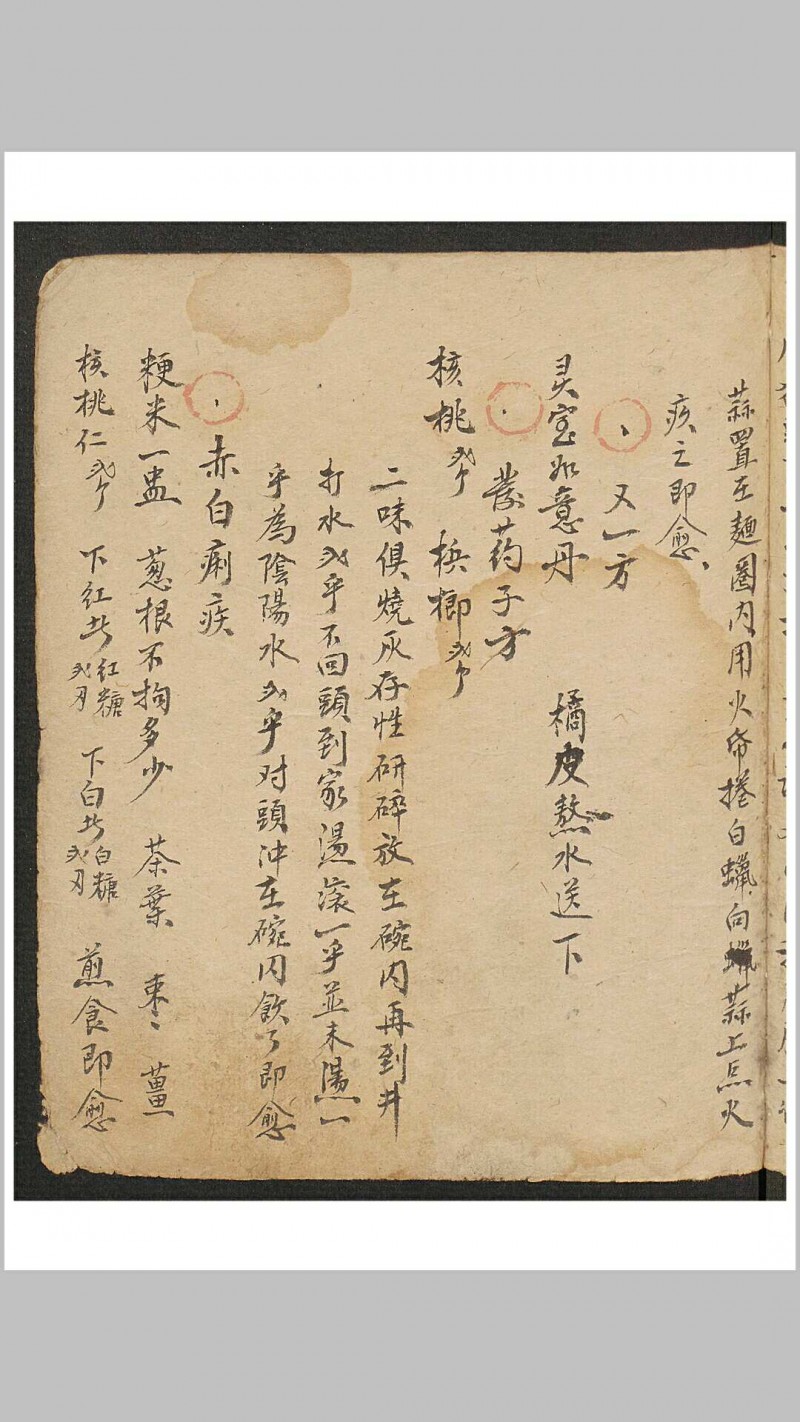 蒜置在麵圈内用火帋捲白蠟向蠟蒜上点火
疾之即愈、
、又一方
灵宝如意丹 橘皮熬水送下
、藥药子方
核桃 檳榔
二味俱燒灰存性研碎放在碗内再到井
打水 乎不回頭到家湯滚一乎並未湯一
乎為陰陽水 乎对頭冲在碗内飲了即愈
、赤白痢疾
粳米一盅 葱根不拘多少 茶葉 枣、薑
核桃仁 下红者红糖 下白者白糖 煎食即愈